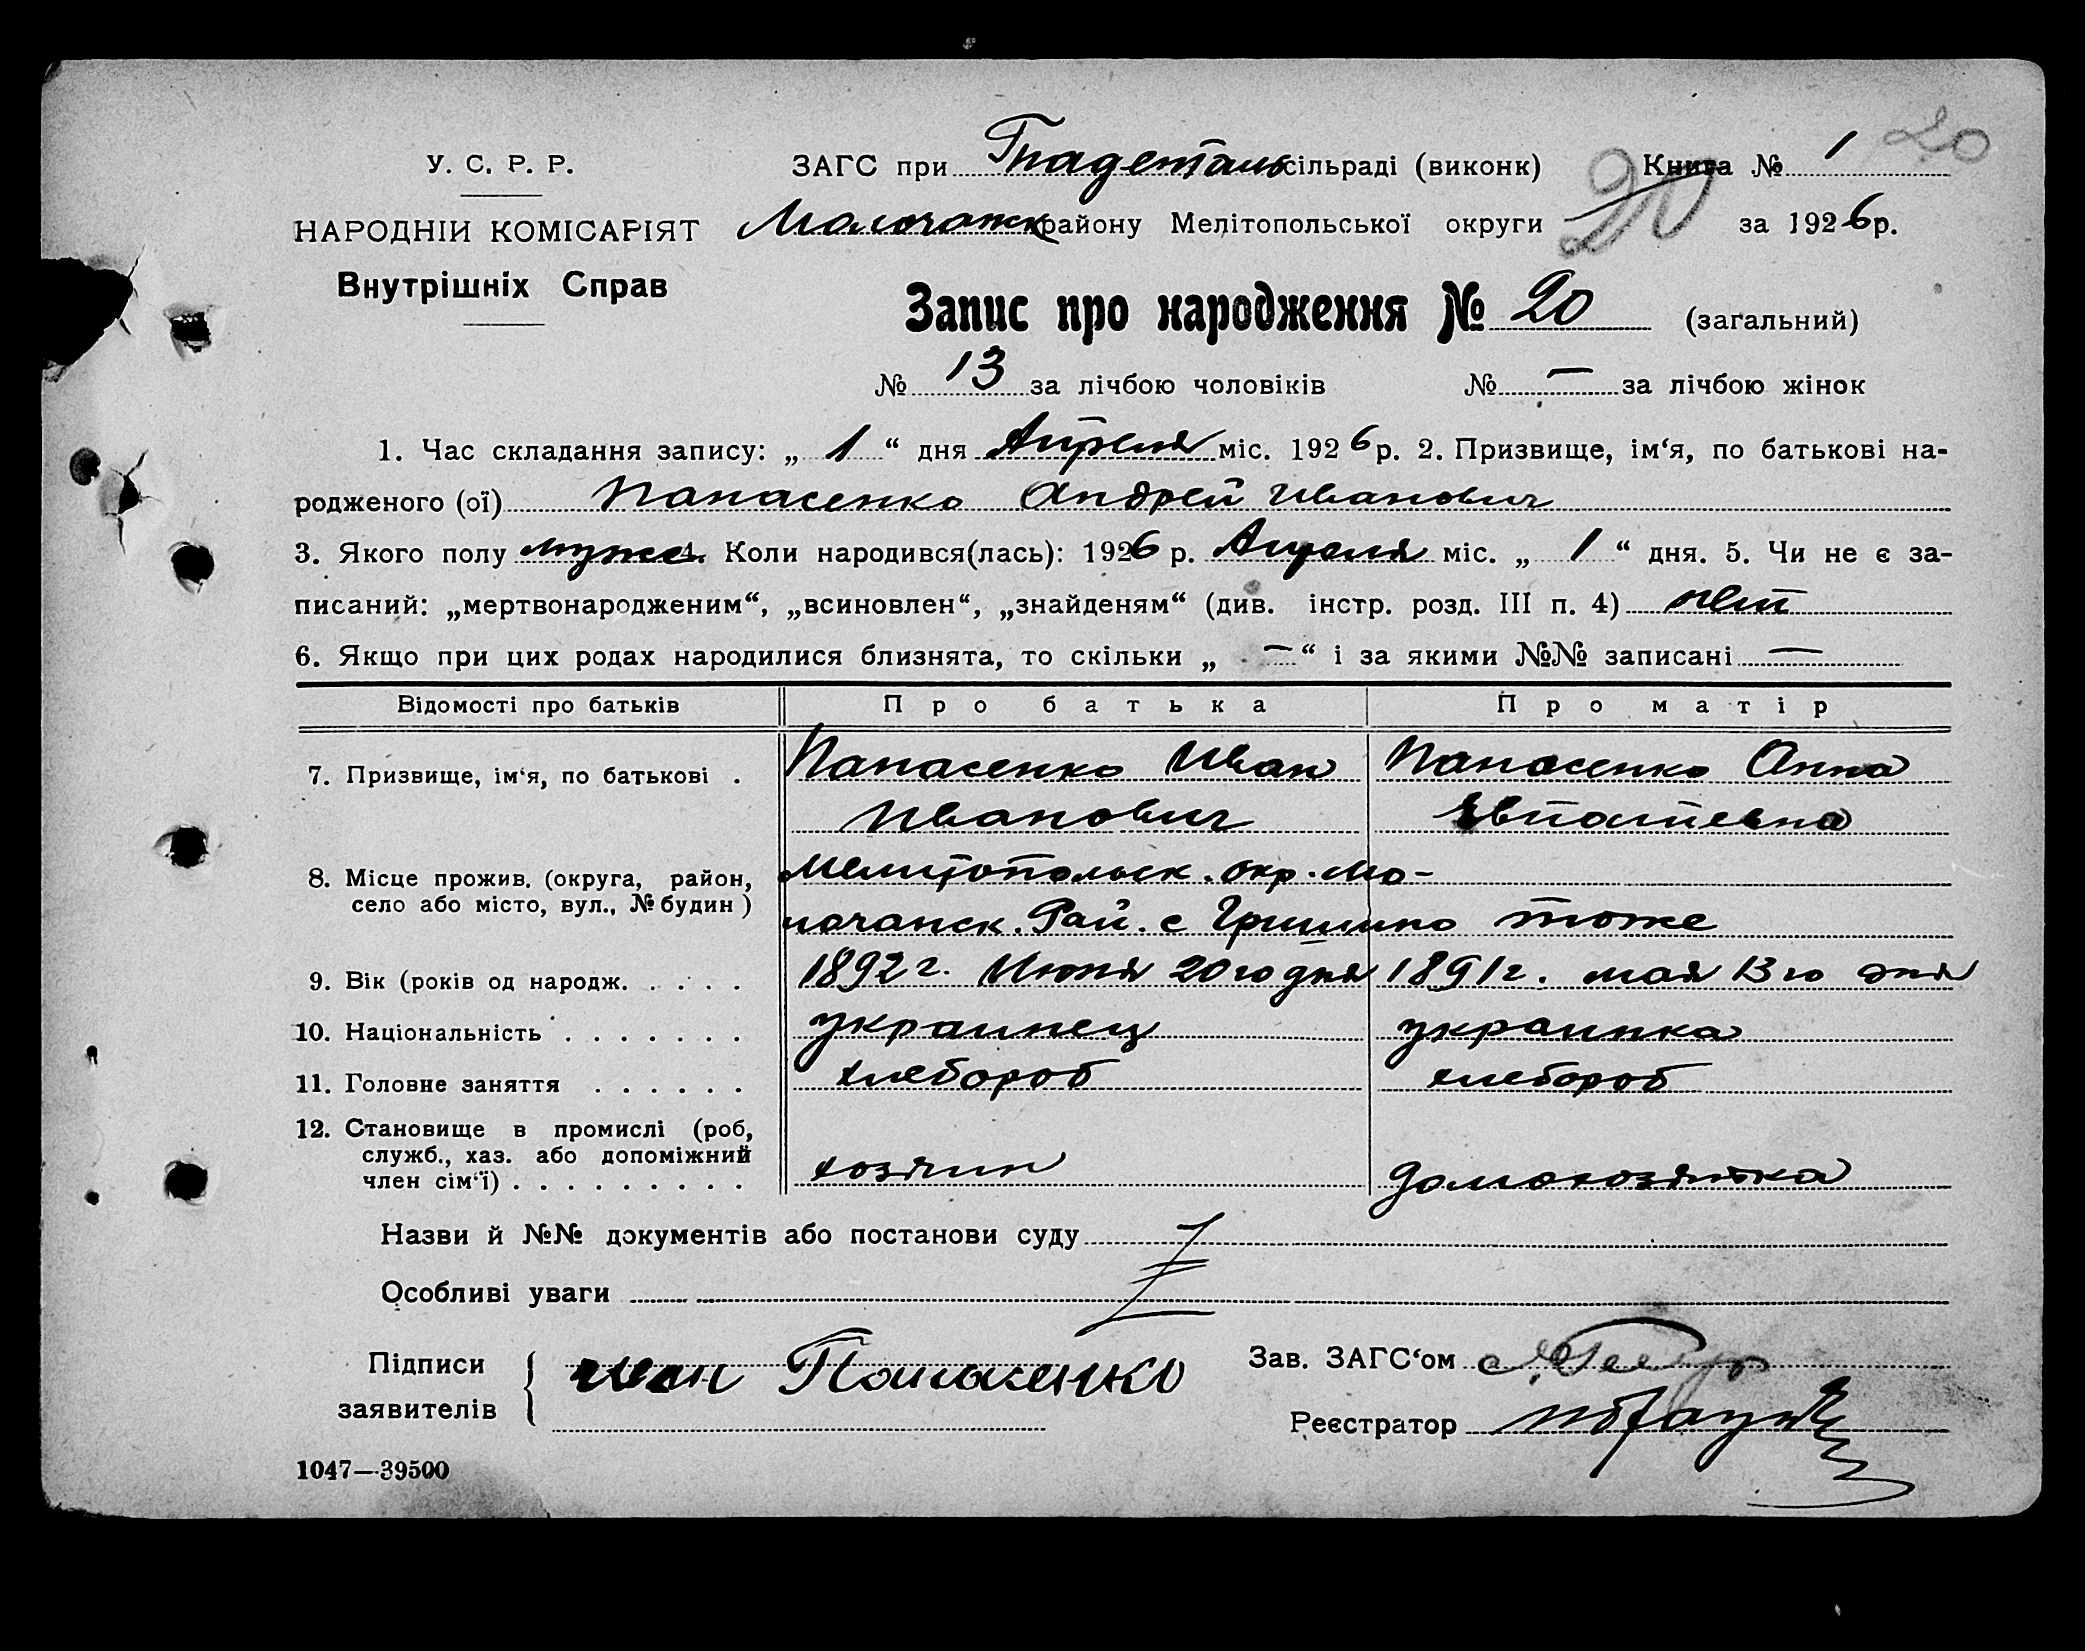 20
У. С. Р. Р.
ЗАГС при Гнаденталь сільраді (виконк) Книга № 1
НАРОДНІЙ КОМІСАРІЯТ
Молочанск району Мелітопольської округи 20 за 1926 р.
Внутрішніх Справ
Запис про народження № 20 (загальний)
№ 13 за лічбою чоловіків № — за лічбою жінок
1. Час складання запису: „ 1 “ дня Апреля міс. 1926 р. 2. Призвище, ім‘я, по батькові на-
родженого (ої) Панасенко Андрей Иванович
3. Якого полу муже 4. Коли народився(лась): 1926 р. Апреля міс. „ 1 “ дня. 5. Чи не є за-
писаний: „мертвонародженим“, „всиновлен“, „знайденям“ (див. інстр. розд. III п. 4) нет
6. Якщо при цих родах народилися близнята, то скільки „ — “ і за якими №№ записані —
Відомості про батьків Про батька Про матір
7. Призвище, ім‘я, по батькові . Панасенко Иван Панасенко Анна
Иванович
8. Місце прожив. (округа, район, Мелитопольск. окр. Мо-
село або місто, вул., № будин ) лочанск. Рай. с Гришино тоже
9. Вік (років од народж. . . . . 1892 г. Июня 20го дня 1891 г. мая 13го дня
10. Національність . . . . . . . украинец украинка
11. Головне заняття . . . . . . хлебороб хлебороб
12. Становище в промислі (роб,
служб., хаз. або допоміжний
член сім‘ї) . . . . . . . . . хозяин домохозяйка
Назви й №№ документів або постанови суду
Особливі уваги
Підписи Иван Панасенко Зав. ЗАГС‘ом
заявителів Реєстратор
1047—39500